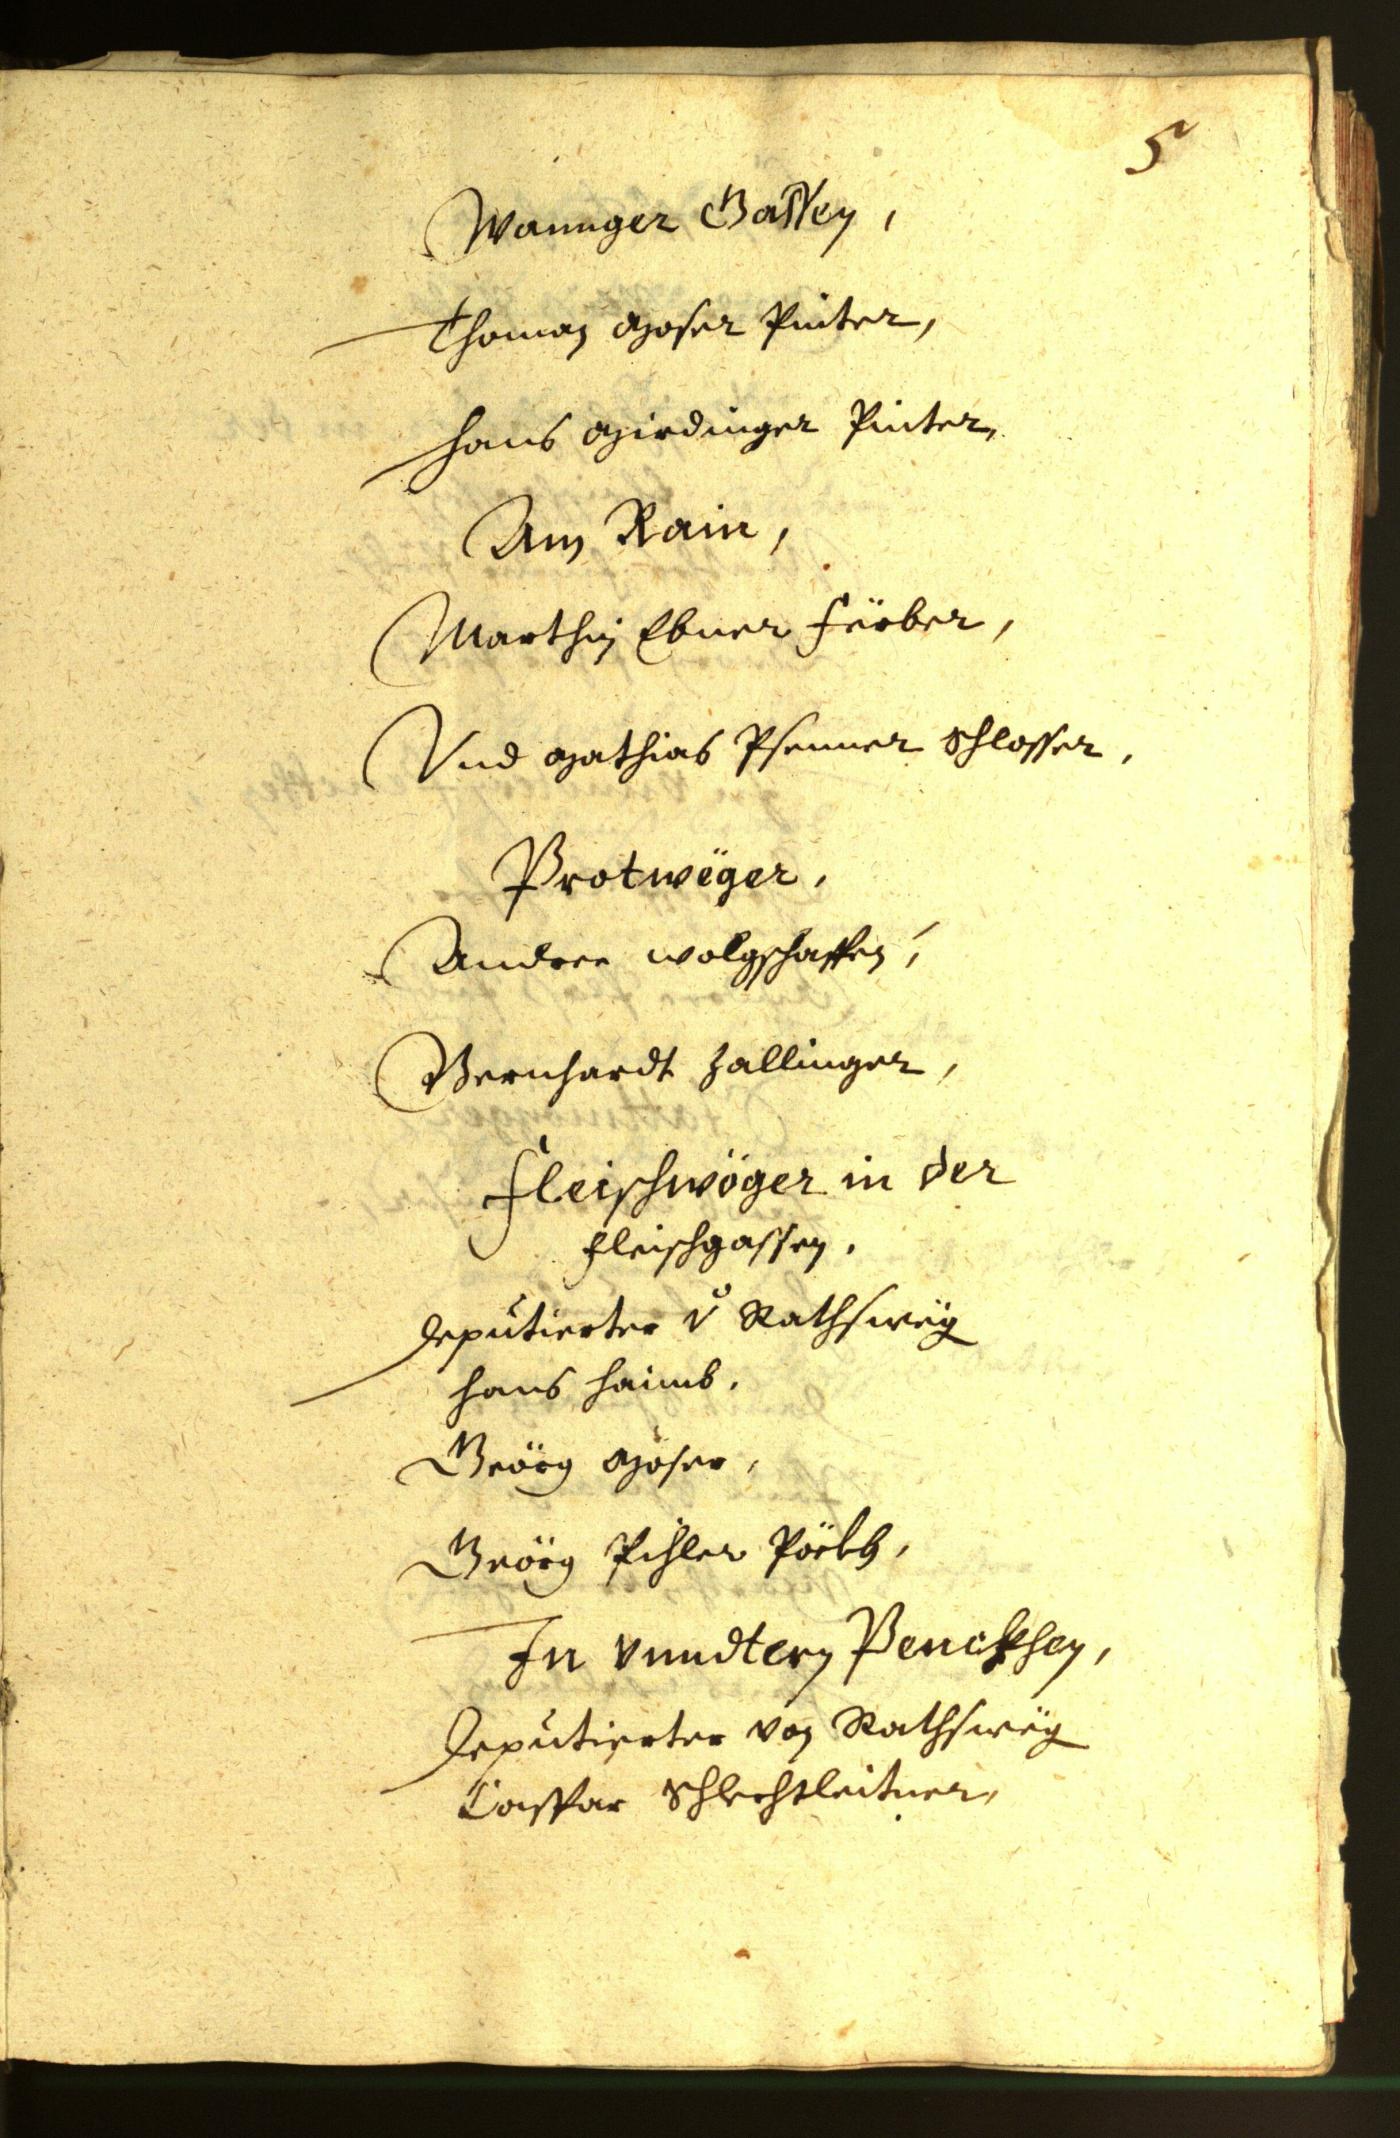 5
Wannger Gassen,
Thoman Moser Pinter,
Hans Mirdinger Pinter,
Am Rain,
Marthin Ebner Färber,
Vnd Mathias Psenner Schlosser,
Protwëger,
Andree wolgschaffen,
Bernhardt Zallinger,
Fleischwöger in der
Fleischgassen,
Deputierter v Rathswëg
Hans Haimb,
Geörg Moser,
Geörg Pihler Pöckh,
In vnndtern Penckhen,
Deputierter von Rathswëg
Casspar Schlechtleitner,